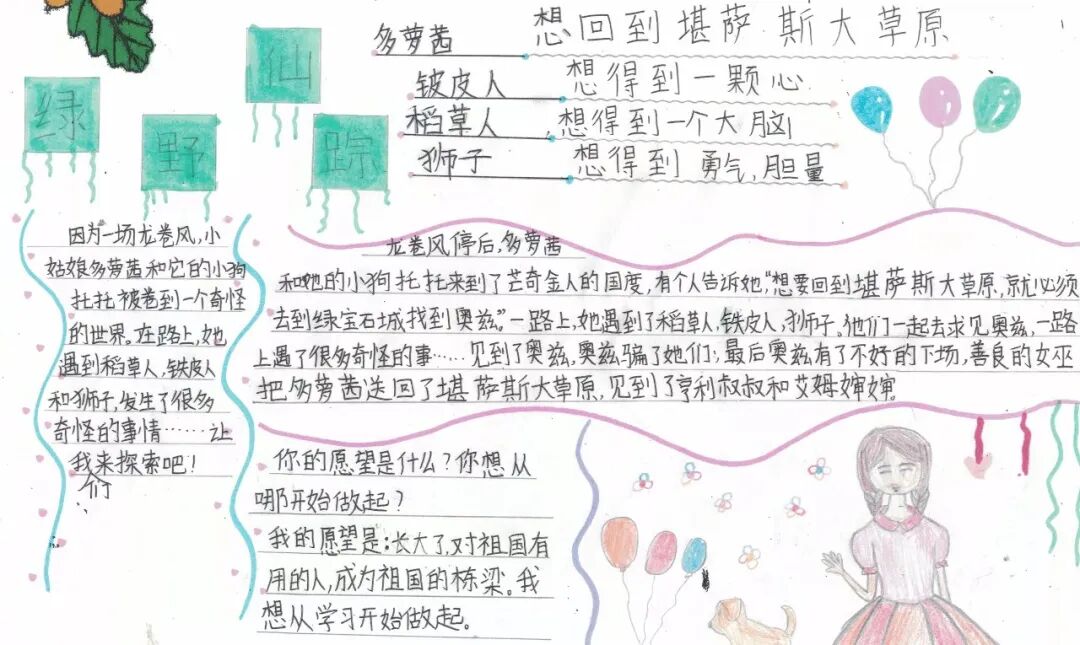 绿野仙踪
多萝茜 想回到堪萨斯大草原
铍皮人 想得到一颗心
稻草人,想得到一个大脑
狮子 想得到勇气,胆量
因为一场龙卷风,小
姑娘多萝茜和它的小狗
托托被卷到一个奇怪
的世界。在路上,她
遇到稻草人,铁皮人
和狮子,发生了很多
奇怪的事情……让
我们来探索吧!
龙卷风停后,多萝茜
和她的小狗托托来到了芒奇金人的国度,有个人告诉她,“想要回到堪萨斯大草原,就必须
去到绿宝石城找到奥兹。”一路上,她遇到了稻草人,铁皮人,狮子。他们一起去求见奥兹,一路
上遇了很多奇怪的事……见到了奥兹,奥兹骗了她们;最后奥兹有了不好的下场,善良的女巫
把多萝茜送回了堪萨斯大草原,见到了亨利叔叔和艾姆婶婶。
你的愿望是什么?你想从
哪开始做起?
我的愿望是:长大了,对祖国有
用的人,成为祖国的栋梁。我
想从学习开始做起。